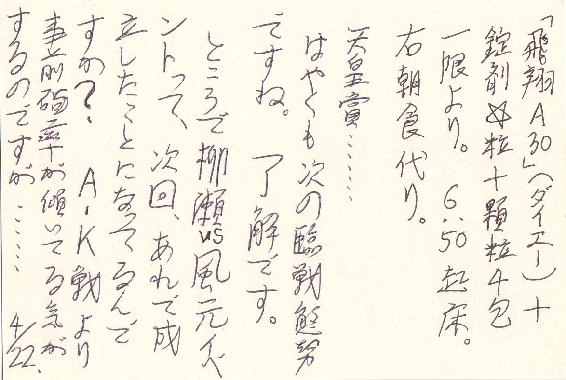 「飛翔A30」(ダイエー)十
錠剤☆粒十顆粒4包
一限より。6:50起床。
右朝食代り。
天皇賞……
はやくも次の臨戦態勢
ですね。了解です。
ところで柳瀬vs風元イベ
ントって、次回、あれで成
立したことになってるんで
すか?A・K戦より
事前確率が傾いてる気が
するのですが……
4/22.